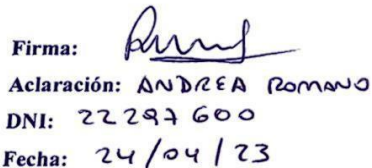 Firma:
Aclaración: ANDREA ROMANO
DNI: 22297600
Fecha: 24/04/23